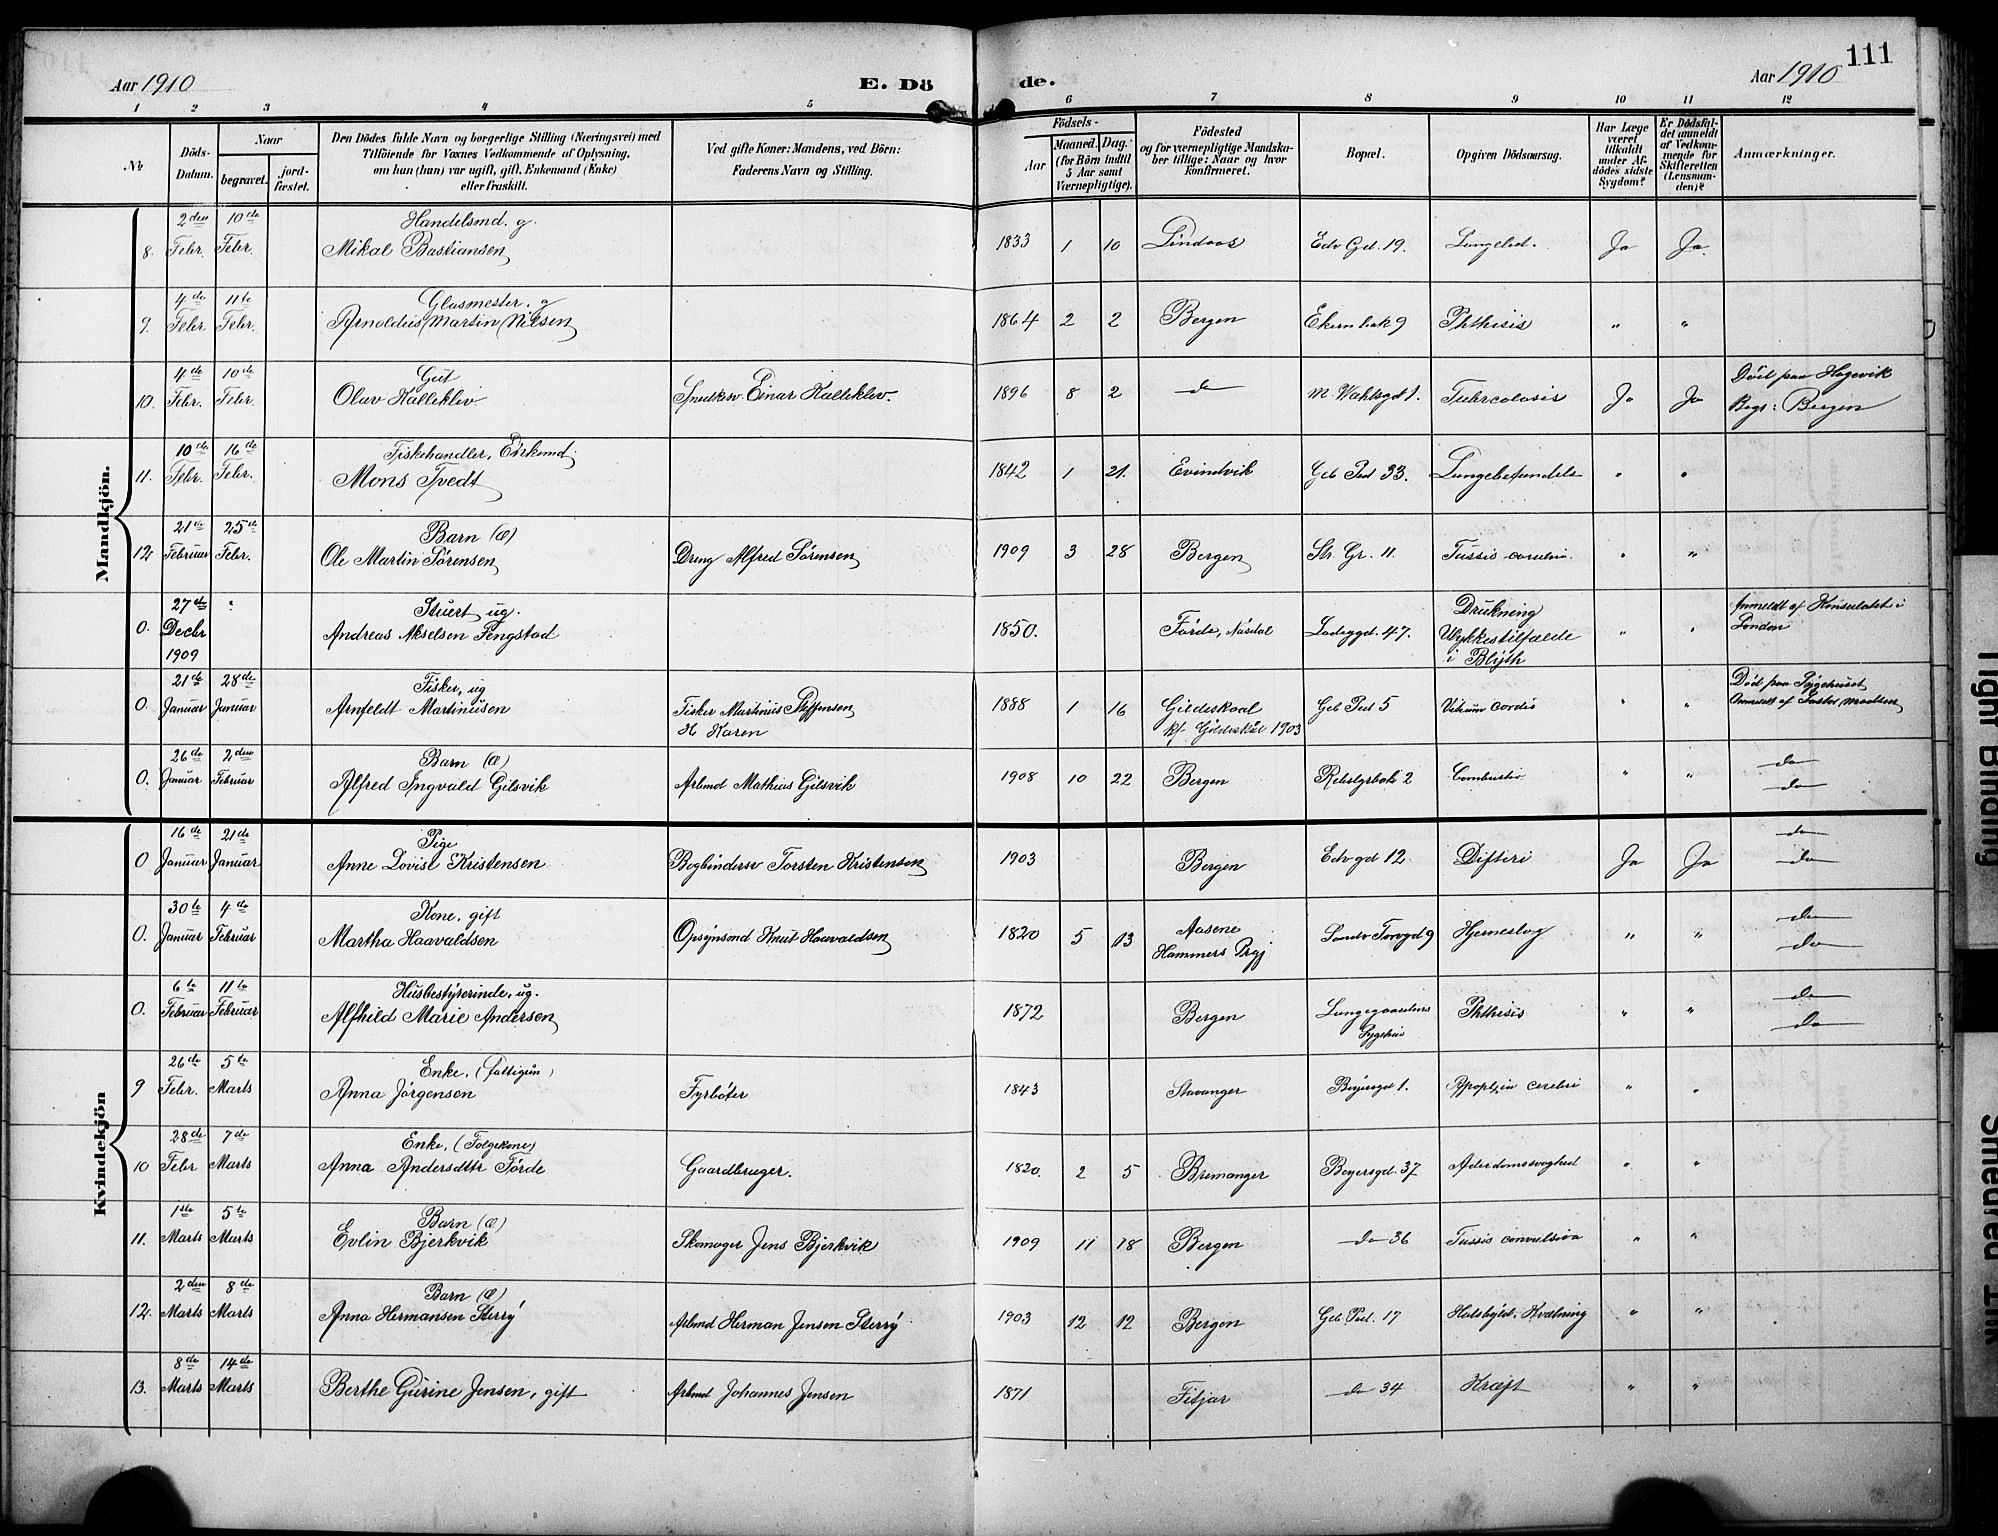 111
Aar 1910
E. Dö
de.
Aar 1910
1 2 3 4 5 6 7 8 9 10 11 12
№
Döds-Datum.
Naar
begravet.
jord-fæstet.
Den Dödes fulde Navn og borgerlige Stilling (Næringsvei) med
Tilföiende for Voxnes Vedkommende af Oplysning,
om han (hun) var ugift, gift, Enkemand (Enke)
eller fraskilt.
Ved gifte Koner: Mandens, ved Börn:
Faderens Navn og Stilling.
Födsels-
Aar
Maaned. Dag.
(for Börn indtil
5 Aar samt
Værnepligtige).
Födested
og for værnepligtige Mandska-
ber tillige: Naar og hvor
konfirmeret.
Bopæl.
Opgiven Dödsaarsag.
Har Læge
været
tilkaldt
under Af-
dödes sidste
Sygdom?
Er Dödsfal-
det anmeldt
af Vedkom-
mende for
Skifteretten
(Lensman-
den)?
Anmærkninger.
Mandkjön.
8. 2den Febr. 10de Febr. Handelsmd. g. Mikal Bastiansen 1833 1 10 Lindaas Edv Gd. 19. Ja Ja
9. 4de Febr. 11te Febr. Glasmester. g Arnoldus Martin Nilsen 1864 2 2 Bergen Phthisis " "
10. 4de Febr. 10de Febr. Gut Olav Kalleklev Snedkersv. Einar Kalleklev. 1896 8 2 do M. Wahlsgd 1. Tubrcolosis Ja Ja Död paa Hagevik
Begr: Bergen
11. 10de Febr. 16de Febr. Fiskehandler, Enkemd. Mons Tvedt 1842 1 21. Evindvik Geb Ped 33. Lungebetændelse " "
12. 21de Februar 25de Febr. Barn (æ) Ole Martin Sørensen Dreng Alfred Sørensen 1909 3 28 Bergen Str. Gr. 11. " "
0. 27de Decbr 1909 Stuert ug. Andreas Akselsen Fengstad 1850. Förde, Lodegd. 47. Drukning
Ulykkestilfælde
i Blyth " " Anmeldt af Konsulatet i
London
0. 21de Januar 28de Januar Fisker, ug Arnfeldt Martinusen Fisker Martinus Steffensen
H Karen 1888 1 16 Gildeskaal
kf. Gildeskål 1903 Geb Ped 5 Vitium cordis " " Död paa Sygehuset
Anmeldt af Pastor
0. 26de Januar 2den Februar Barn (æ) Alfred Ingvald Gilsvik Arbmd Mathias Gilsvik 1908 10 22 Bergen 2 Combustio " " do
do
Kvindekjön
0 16de Januar 21de Januar Pige Anne Lovise Kristensen Bogbindersv Torsten Kristensen 1903 Bergen Edvgd 12 Difteri Ja Ja do
do
0. 30te Januar 4de Februar Kone, gift Martha Haavaldsen Opsynsmd Knut Haavaldsen 1820 5 13 Aasene
Hammers Prgj Torvgd 9 Hjerneslag " " do
do
0. 6te Februar 11te Februar Husbestyrerinde, ug. Alfhild Marie Andersen 1872 Bergen Lungegaardens
Sygehus Phthisis " " do
do
9 26de Febr. 5te Marts Enke, (fattigun) Anna Jörgensen Fyrböter 1843 Stavanger 1. Apoplexia cerebri " "
10 28de Febr 7de Marts Enke, (Følgekone) Anna Andersdttr Förde Gaardbruger. 1820. 2 5 Bremanger Beyersgd. 37 Alderdomssvaghed " "
11. 1ste Marts 5te Marts Barn (æ) Evlin Bjerkvik Skomager Jens Bjerkvik 1909 11 18 Bergen do 36 Tussis convulsiva " "
12. 2den Marts 8de Marts Barn (æ) Anna Hermansen Sterry Arbmd Herman Jensen Sterry 1903 12 12 Bergen Geb Ped. 17 Halsbyld. Kvælning " "
13. 8de Marts 14de Marts Berthe Gurine Jensen, gift Arbmd Johannes Jensen 1871 Fitjar do 34 Kræft " "
Tight Binding
Smeared Ink